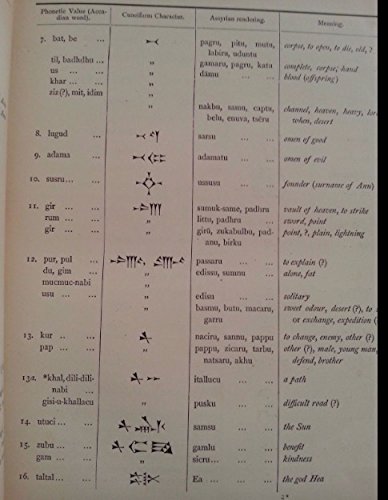 Phonetic Value (Accadian word). Cuneiform Character. Assyrian rendering. Meaning.
7. bat, be ... 𒁁 pagru, pitu, mutu, labiru, uduntu corpse, to open, to die, old, ?
til, badhdhu ... „ gamaru, pagru, kata complete, corpse, hand
us ... ... „ dāmu ... ... blood (offspring)
khar ... ... „
ziz (?), mit, idim „ nakbu, samu, captu, belu, enuva, tsēru channel, heaven, heavy, lord, when, desert
8. lugud ... sarsu ... ... omen of good
9. adama ... adamatu ... ... omen of evil
10. susru ... ... ussusu ... ... founder (surname of Anu)
11. gir ... ... samuk-same, padhru vault of heaven, to strike
rum ... ... „ littu, padhru ... sword, point
gir ... ... „ girū, zukabulbu, padanu, birku point, ?, plain, lightning
12. pur, pul ... passaru ... ... to explain (?)
du, gim ... „ edissu, sumnu ... alone, fat
mucmuc-nabi „
usu ... ... „ edisu ... ... solitary
„ basmu, butu, macaru, garru sweet odour, desert (?), to or exchange, expedition
13. kur .. .. naciru, sannu, pappu to change, enemy, other (?)
pap ... ... „ pappu, zicaru, tarbu, natsaru, akhu other (?), male, young man, defend, brother
13a. *khal, dili-dili-nabi ... itallucu ... ... a path
gisi-u-khallacu „ pusku ... ... difficult road (?)
14. utuci ... ... samsu ... ... the Sun
15. zubu ... ... gamlu ... ... benefit
gam ... ... „ sicru ... ... kindness
16. taltal ... ... Ea ... ... the god Hea
2*